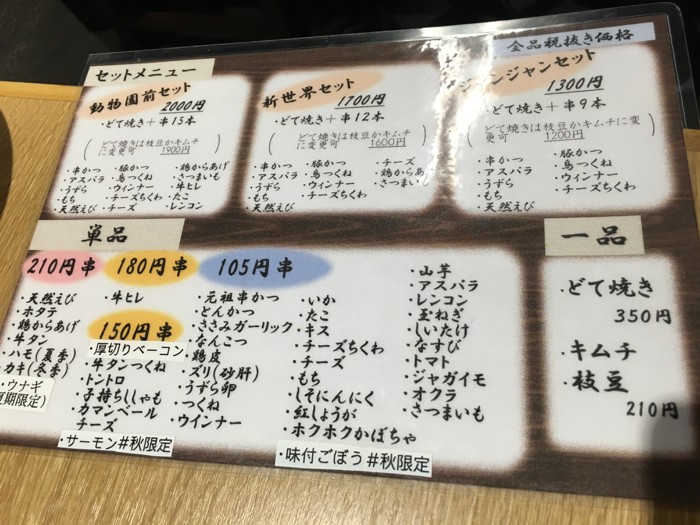 セットメニュー
全品税抜き価格
動物園前セット
2000円
・どて焼き＋串15本
(どて焼きは枝豆かキムチ
に変更可 1900円)
・串かつ ・豚かつ ・鶏からあげ
・アスパラ ・鳥つくね ・さつまいも
・うずら ・ウィンナー ・牛ヒレ
・もち ・チーズちくわ ・たこ
・天然えび ・チーズ ・レンコン
新世界セット
1700円
・どて焼き＋串12本
(どて焼きは枝豆かキムチ
に変更可 1600円)
・串かつ ・豚かつ ・チーズ
・アスパラ ・鳥つくね ・鶏からあ
・うずら ・ウィンナー ・さつまいも
・もち ・チーズちくわ
・天然えび
ジャンジャンセット
1300円
・どて焼き＋串9本
(どて焼きは枝豆かキムチに変更
可 1200円)
・串かつ ・豚かつ
・アスパラ ・鳥つくね
・うずら ・ウィンナー
・もち ・チーズちくわ
・天然えび
単品
210円串
・天然えび
・ホタテ
・鶏からあげ
・牛タン
・ハモ(夏季)
・カキ(冬季)
・ウナギ
夏期限定)
180円串
・牛ヒレ
150円串
・厚切りベーコン
・牛タンつくね
・トントロ
・子持ちししゃも
・カマンベール
チーズ
・サーモン#秋限定
105円串
・元祖串かつ
・とんかつ
・ささみガーリック
・なんこつ
・鶏皮
・ズリ(砂肝)
・うずら卵
・つくね
・ウインナー
・いか
・たこ
・キス
・チーズちくわ
・チーズ
・もち
・しそにんにく
・紅しょうが
・ホクホクかぼちゃ
・味付ごぼう#秋限定
・山芋
・アスパラ
・レンコン
・玉ねぎ
・しいたけ
・なすび
・トマト
・ジャガイモ
・オクラ
・さつまいも
一品
・どて焼き
350円
・キムチ
・枝豆
210円